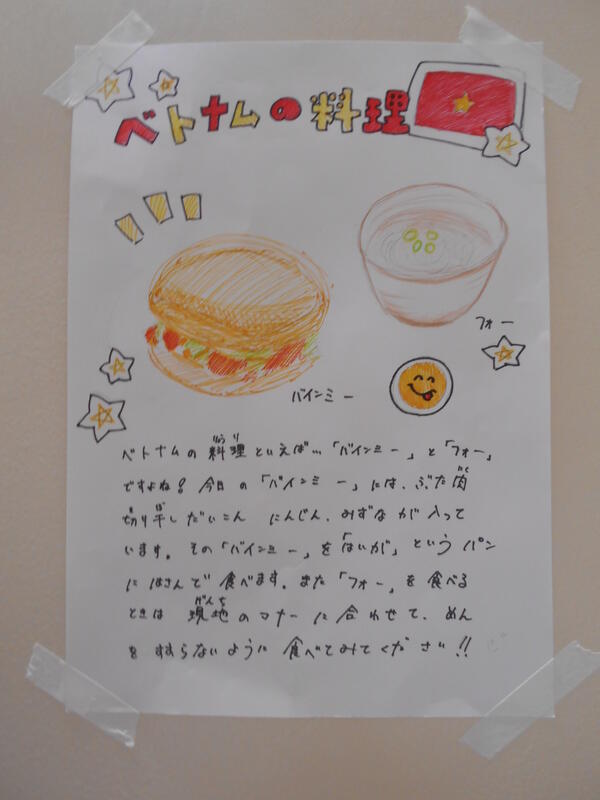 ベトナムの料理
フォー
バインミー
ベトナムの料理といえば…「バインミー」と「フォー」
ですよね！今日の「バインミー」には、ぶた肉
切り干しだいこん にんじん、みずなが入って
います。その「バインミー」を「はいが」というパン
にはさんで食べます。また「フォー」を食べる
ときは現地のマナーに合わせて、めん
をすすらないように食べてみてください!!